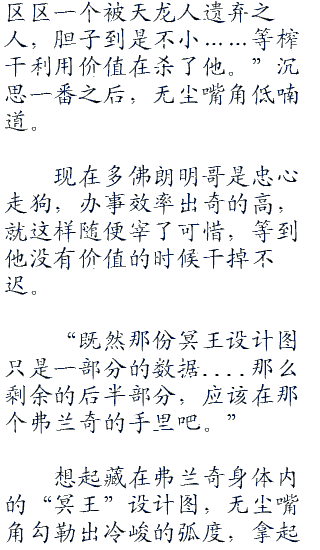 区区一个被天龙人遗弃之
人，胆子到是不小……等榨
干利用价值在杀了他。”沉
思一番之后，无尘嘴角低喃
道。
现在多佛朗明哥是忠心
走狗，办事效率出奇的高，
就这样随便宰了可惜，等到
他没有价值的时候干掉不
迟。
“既然那份冥王设计图
只是一部分的数据....那么
剩余的后半部分，应该在那
个弗兰奇的手里吧。”
想起藏在弗兰奇身体内
的“冥王”设计图，无尘嘴
角勾勒出冷峻的弧度，拿起